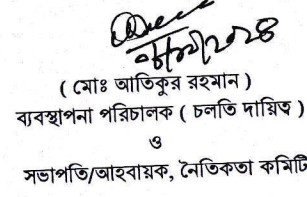 ( মোঃ আতিকুর রহমান )
ব্যবস্থাপনা পরিচালক ( চলতি দায়িত্ব )
ও
সভাপতি/আহবায়ক, নৈতিকতা কমিটি